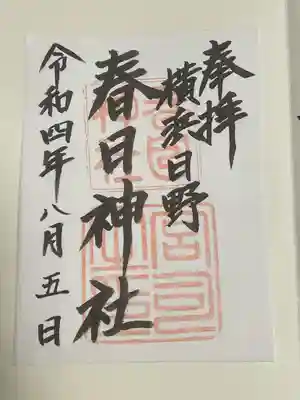 奉拝
横浜日野
春日神社
令和四年八月五日